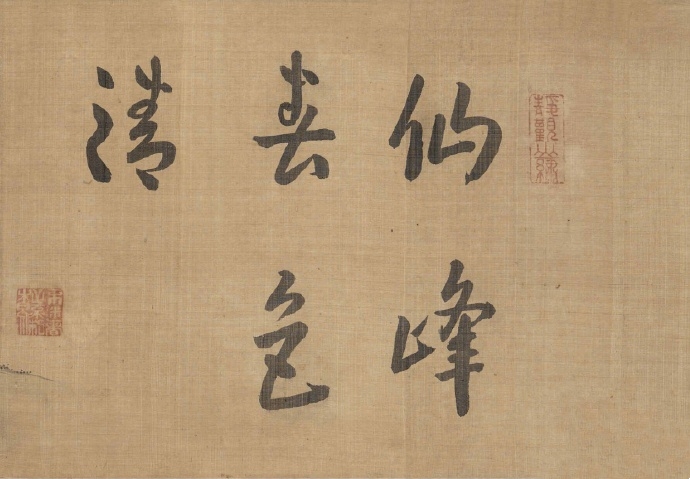 仙峰
春色
清